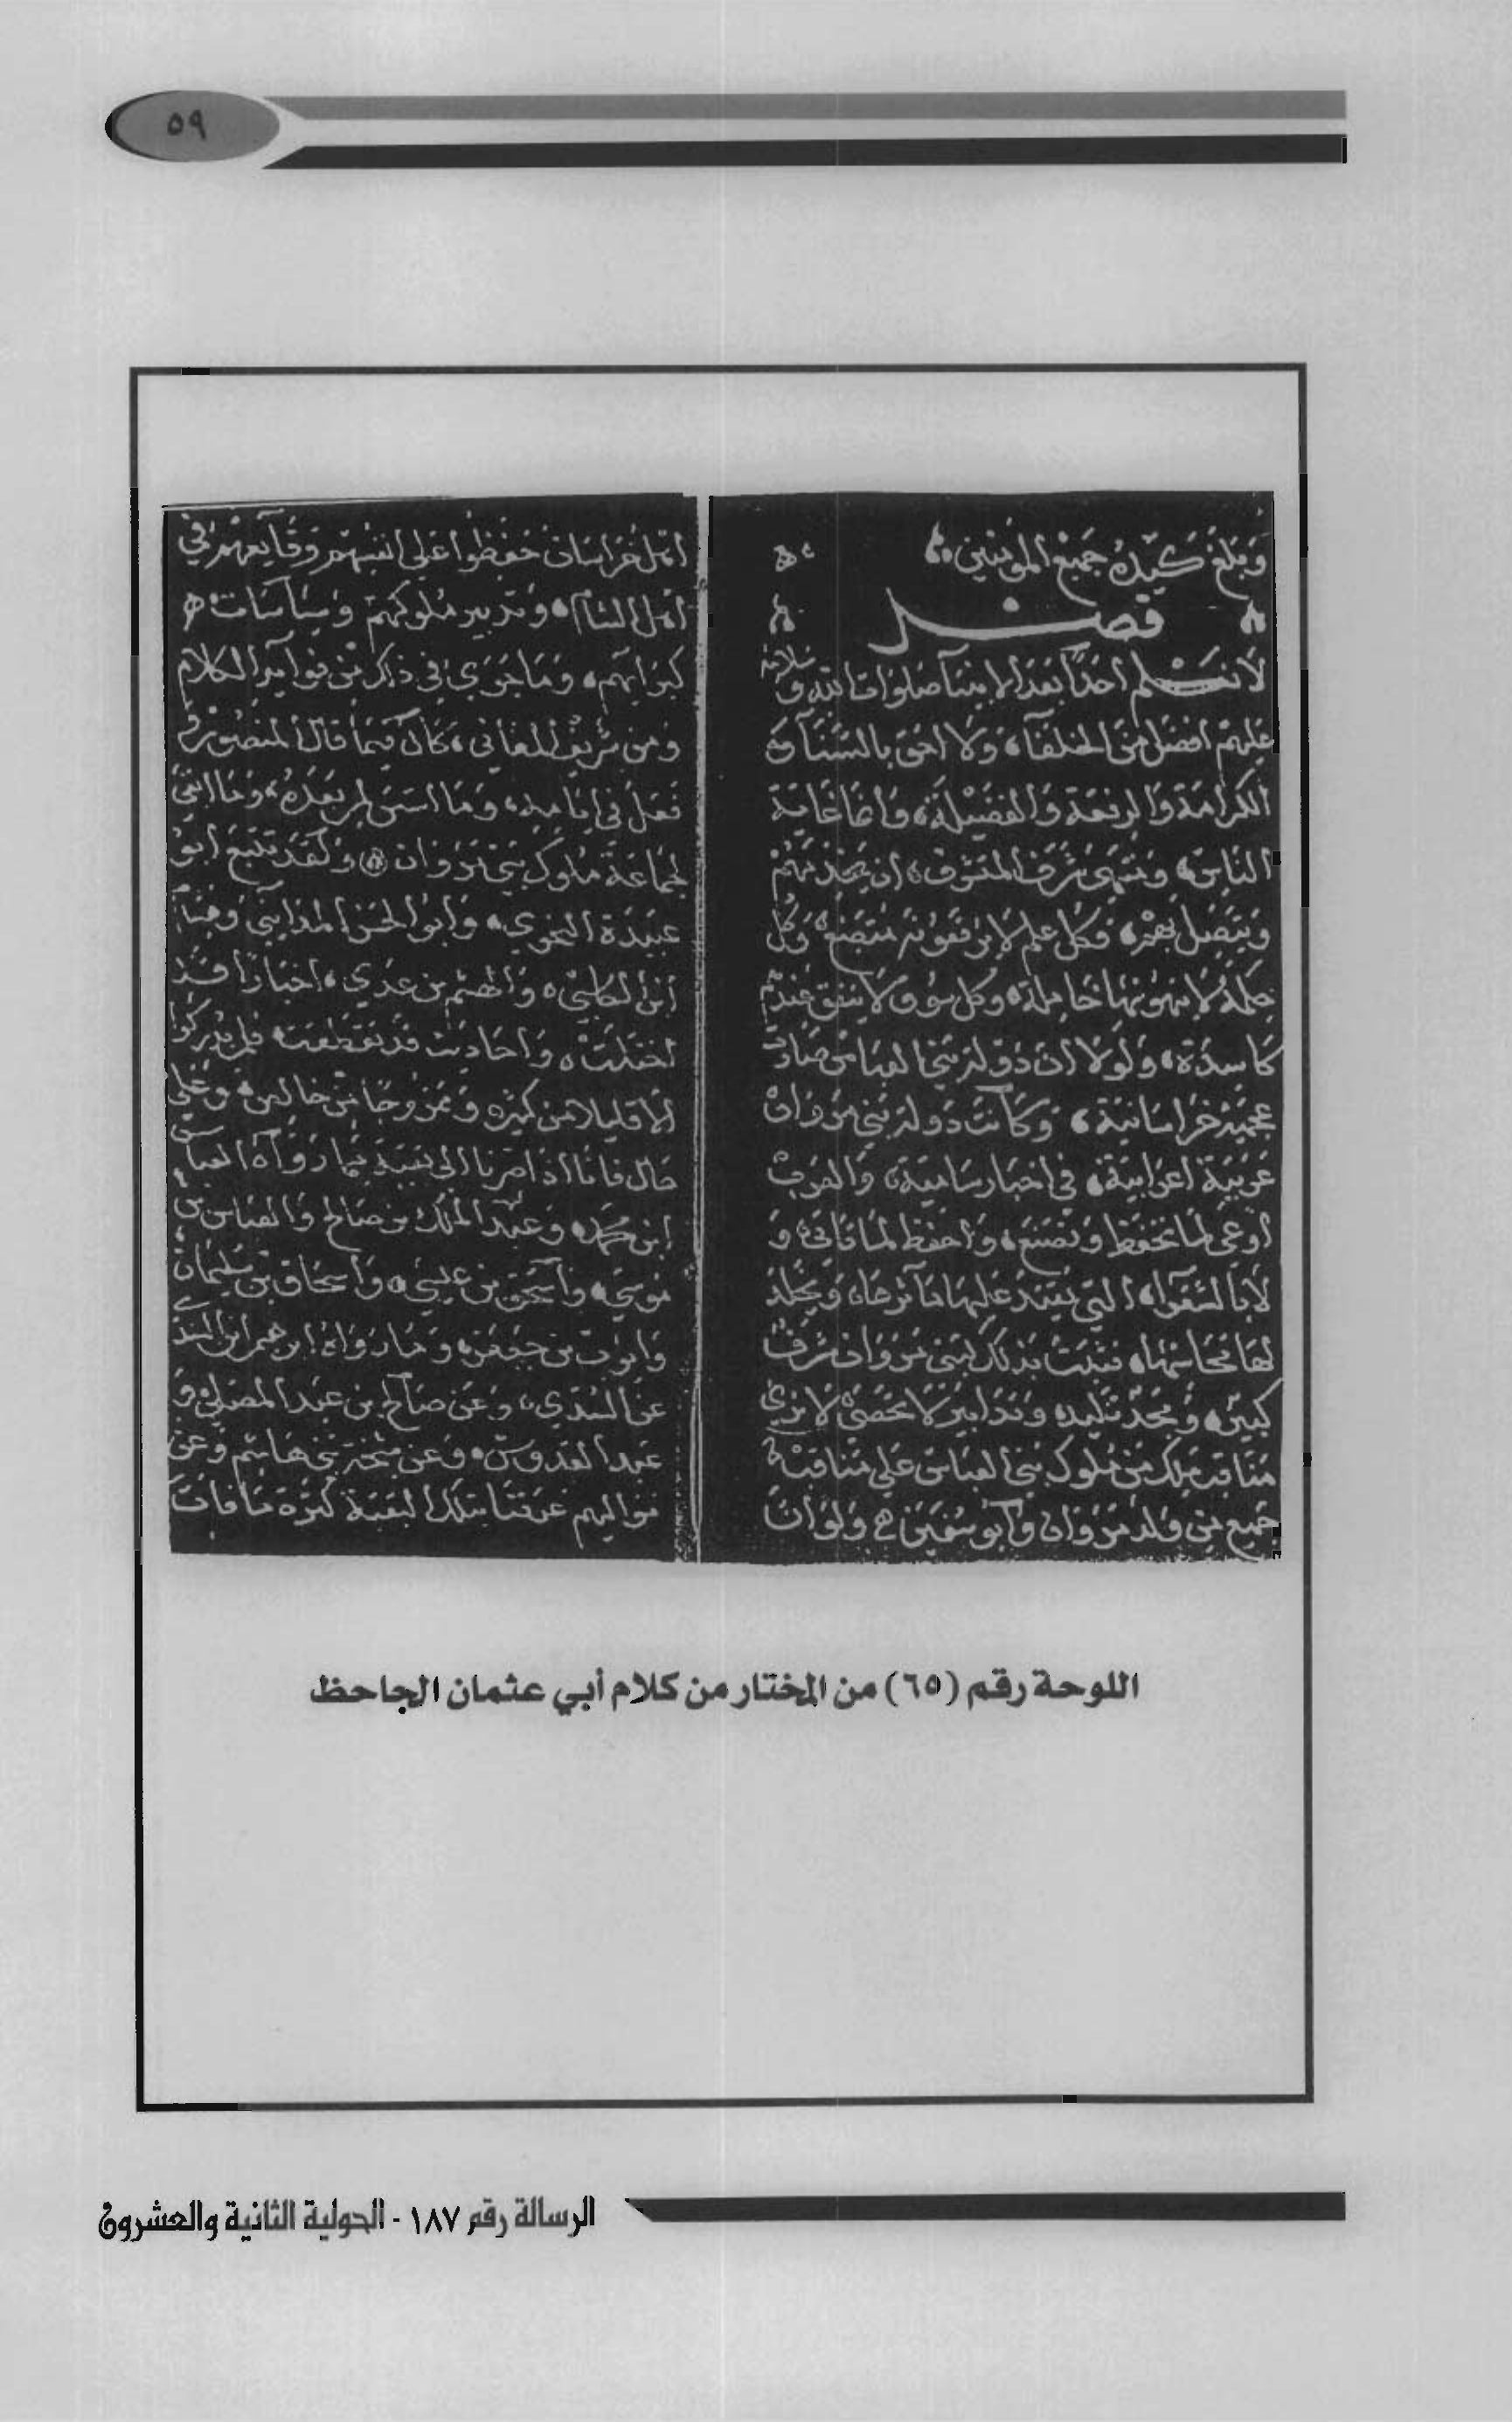 ٥٩
وَبَلَغَ كَيْدُهُ جَمِيعَ المؤمنين
فصل
لا نعلم أحدًا بَعْدَ الأنبيآ صَلَوَاتُ الله و سلامه
عَليهم أفضل من الخلفآء، وَلا احق بالسَّنَآء وَ
الكرامَة وَالرفعَة وَالفَضِيلَة، وَأنما غايَة
النَّاس، ومنتهى شرَف المتشرف، ان يخدمَهُمْ
وَيتصل بهم، فكل علم لا يرفعونه متضع، وَكل
لا ينوهُونهَا خاملة، وكل سُوق لا ينفق عندهم
كاسِدَة، وَلَولا ان دَولة بني العباس
عجميّة خراسَانية، وَكَانتْ دَولة بَني مَرْوَان
عَرَبيَة اعرابيّة، في وَالعرَبُ
أوعَى لمَا تحفَظ وَ، وَاحفظ لمَا وَ
الشعَرآء، التي عَليهَا مآثرهَا، وَيخلّدُ
لهَا محَاسِنهَا، بذَلكَ لبَنى مَرْوَان شرَفٌ
كبير، وَمجدٌ تليد، وَتدَابيرُ لا تحصَى،
مناقب ملِك مِنْ مُلوك بني العبَاس عَلى مناقب
جميع مِن وَلد مَرْوَان وَأبو سُفيَن، وَلوْ أنَ
اهْل خرَاسَان حَفظوا عَلى انفسهم وَقَآيعَهُمْ في
اهْل الشام، وَتدبير مُلوكهم، وَسِيَاسَات
كبرَايهم، وَمَا جَرَى في ذلك مِن فوآيد الكلام
وَمن شريف المعَاني، كَان فيمَا قال المنصُور وَمَا
فعَل في أيَّامِه، وَمَا اسسَ لمن بَعْدَهُ، وَ
لجمَاعَة مُلوك بَني مَرْوَان وَلَقَدْ تتبَّع ابُو
عُبَيْدَة النحوي، وَابوُ الحسَن المدَايني وَهشَام
ابن الكلبي، وَالهيثم بن عَدِي، اخبَارًا قدْ
اختلَّتْ، وَاحَاديثَ قد تقطعَت، فلم يُدركوُا
إلا قليلا من كثير، وَممزوجًا مِن خالص، وَعَلى
حَال فانا اذا صِرنا الى بَقيَة مَا رَوَاهُ العباس
ابن محمد، وَعَبْد الملك بن صَالح وَالعَباس بن
مُوسَى، وَاسحَق بن عيسَى، وَاسحَاق بن سُليمَان
وَايوبُ بن جَعفر، وَمَا رَوَاهُ إبرهيم ابن السندي
عَن السندي، وَعَن صَالح بن المصلى وَ
عن مشيخَة بَني هَاشم وَعَن
مَوَاليهم عَرفنَا بتلك البقيَة كثرَة مَا فاتَ
اللوحة رقم (٦٥) من المختار من كلام أبي عثمان الجاحظ
الرسالة رقم ١٨٧ - الحولية الثانية والعشرون